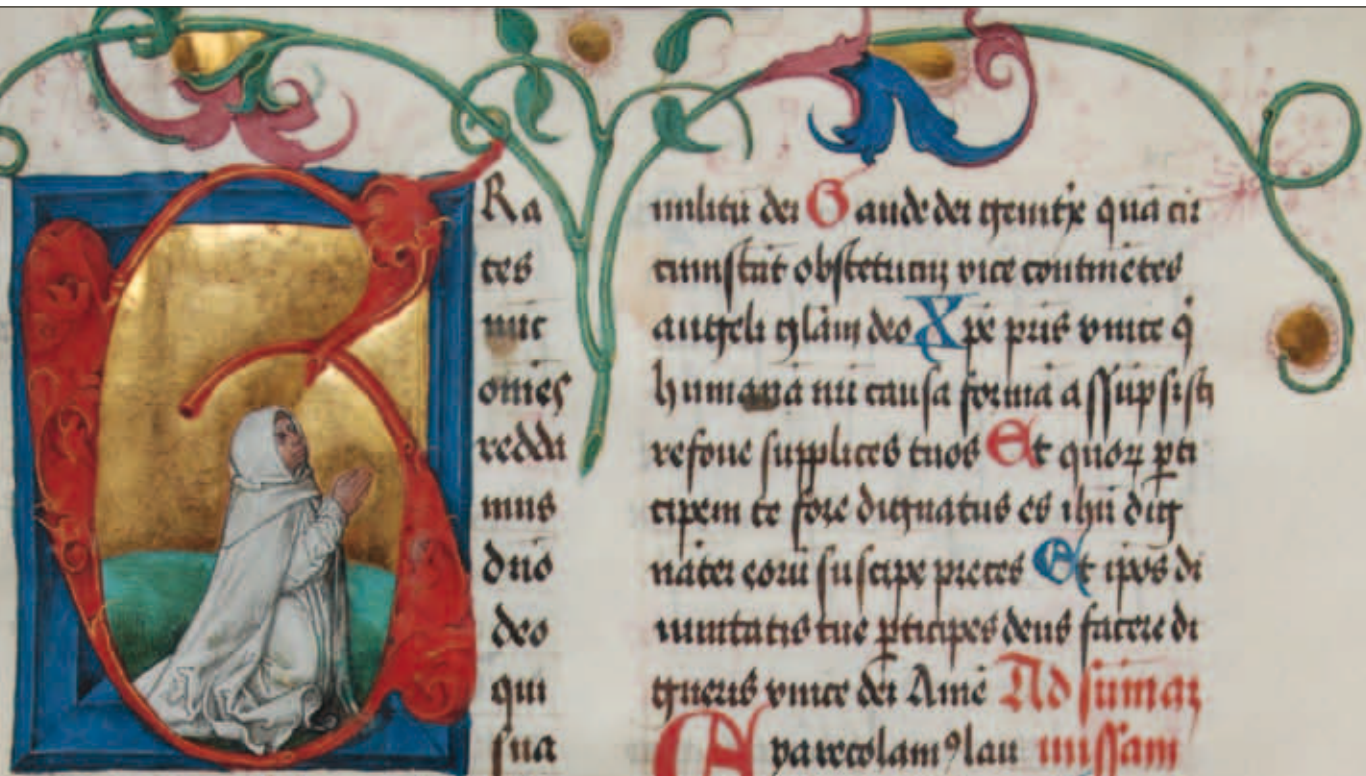 G Ra
tes
nūc
om̄es
reddi
mus
dn̄o
deo
qui
sua
militū dei Gaude dei genit͛x quā cir
cūmstāt obstetricū vice contine͞tes
angeli gl̄am deo Xpē pr̄is vnice q̄
humanā nr̄i causa formā assūpsisti
refoue supplices tuos Et quoꝝ ꝑti
cipem te fore dignatus es ihū dig
nāter eorū suscipe preces Et ip̄os di
uinitatis tue ꝑticipes deus facere di
gneris vnice dei Amē Ad sūmaꝫ
Eya recolamꝰ lau missam